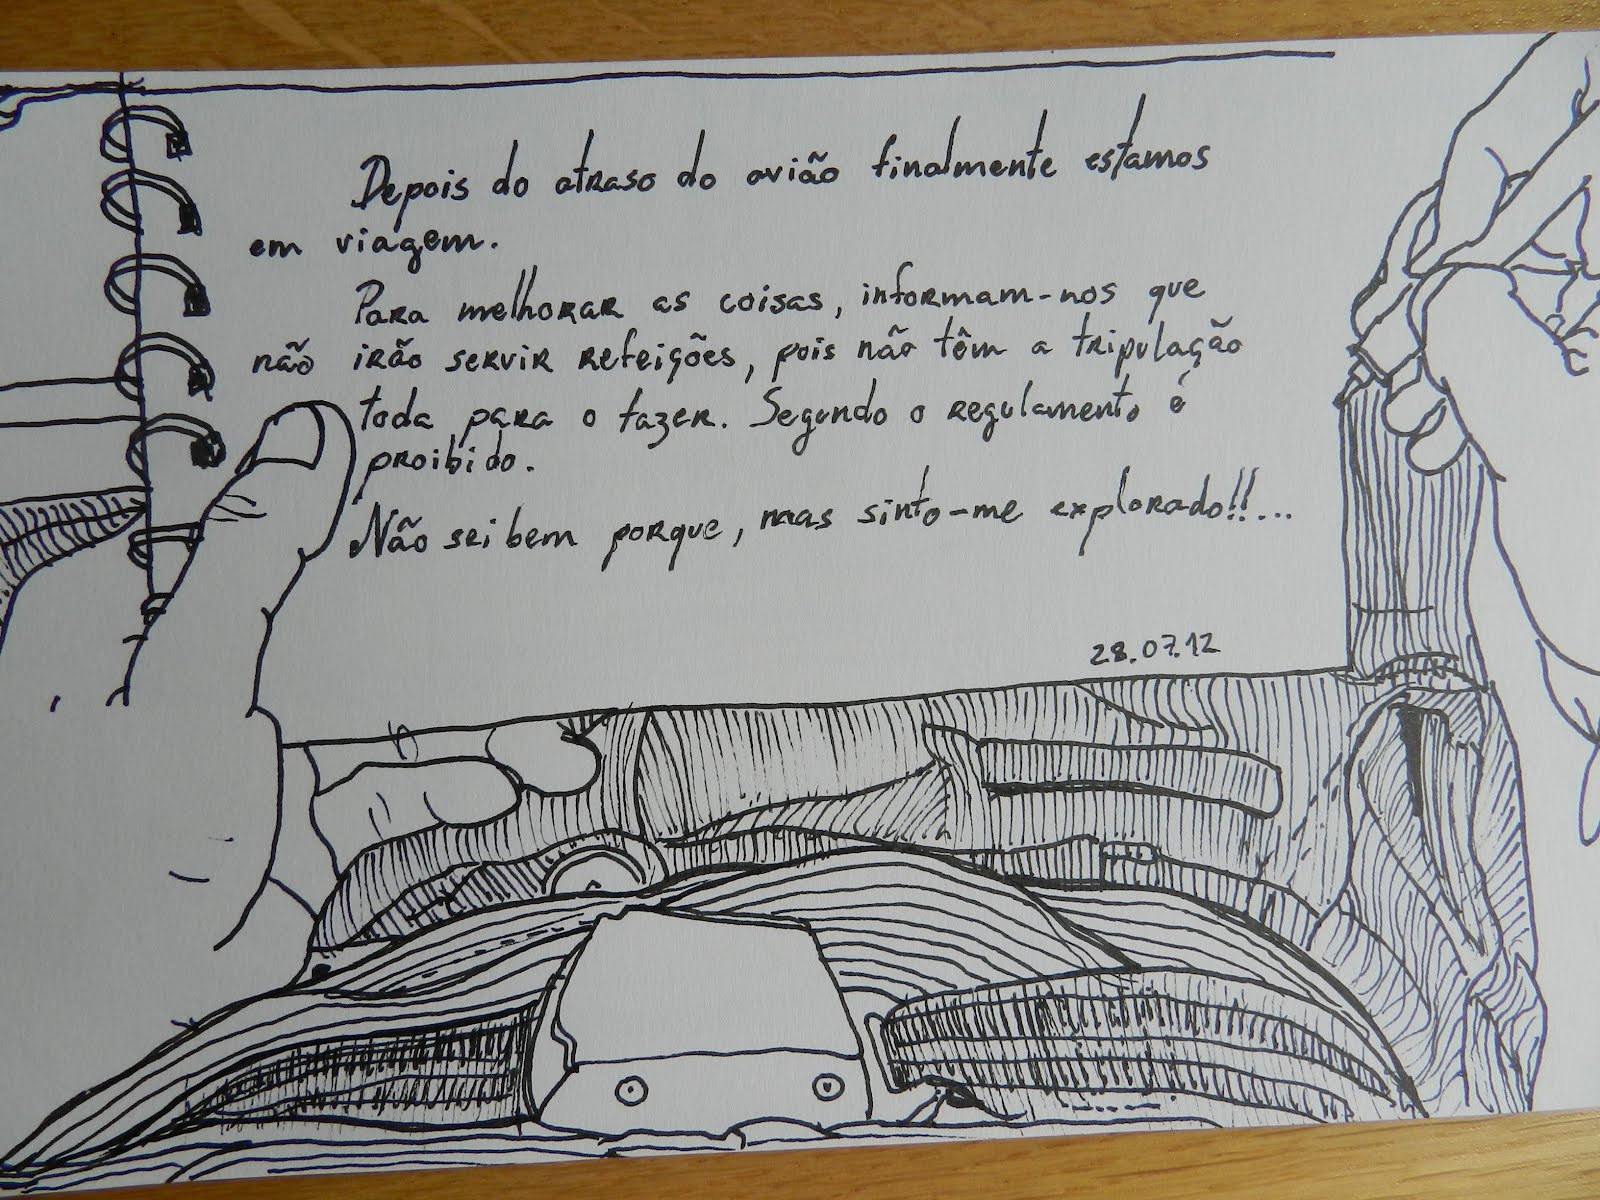 Depois do atraso do avião finalmente estamos
em viagem.
Para melhorar as coisas, informam-nos que
não irão servir refeições, pois não têm a tripulação
toda para o fazer. Segundo o regulamento é
proibido.
Não sei bem porque, mas sinto-me explorado!!...
28.07.12